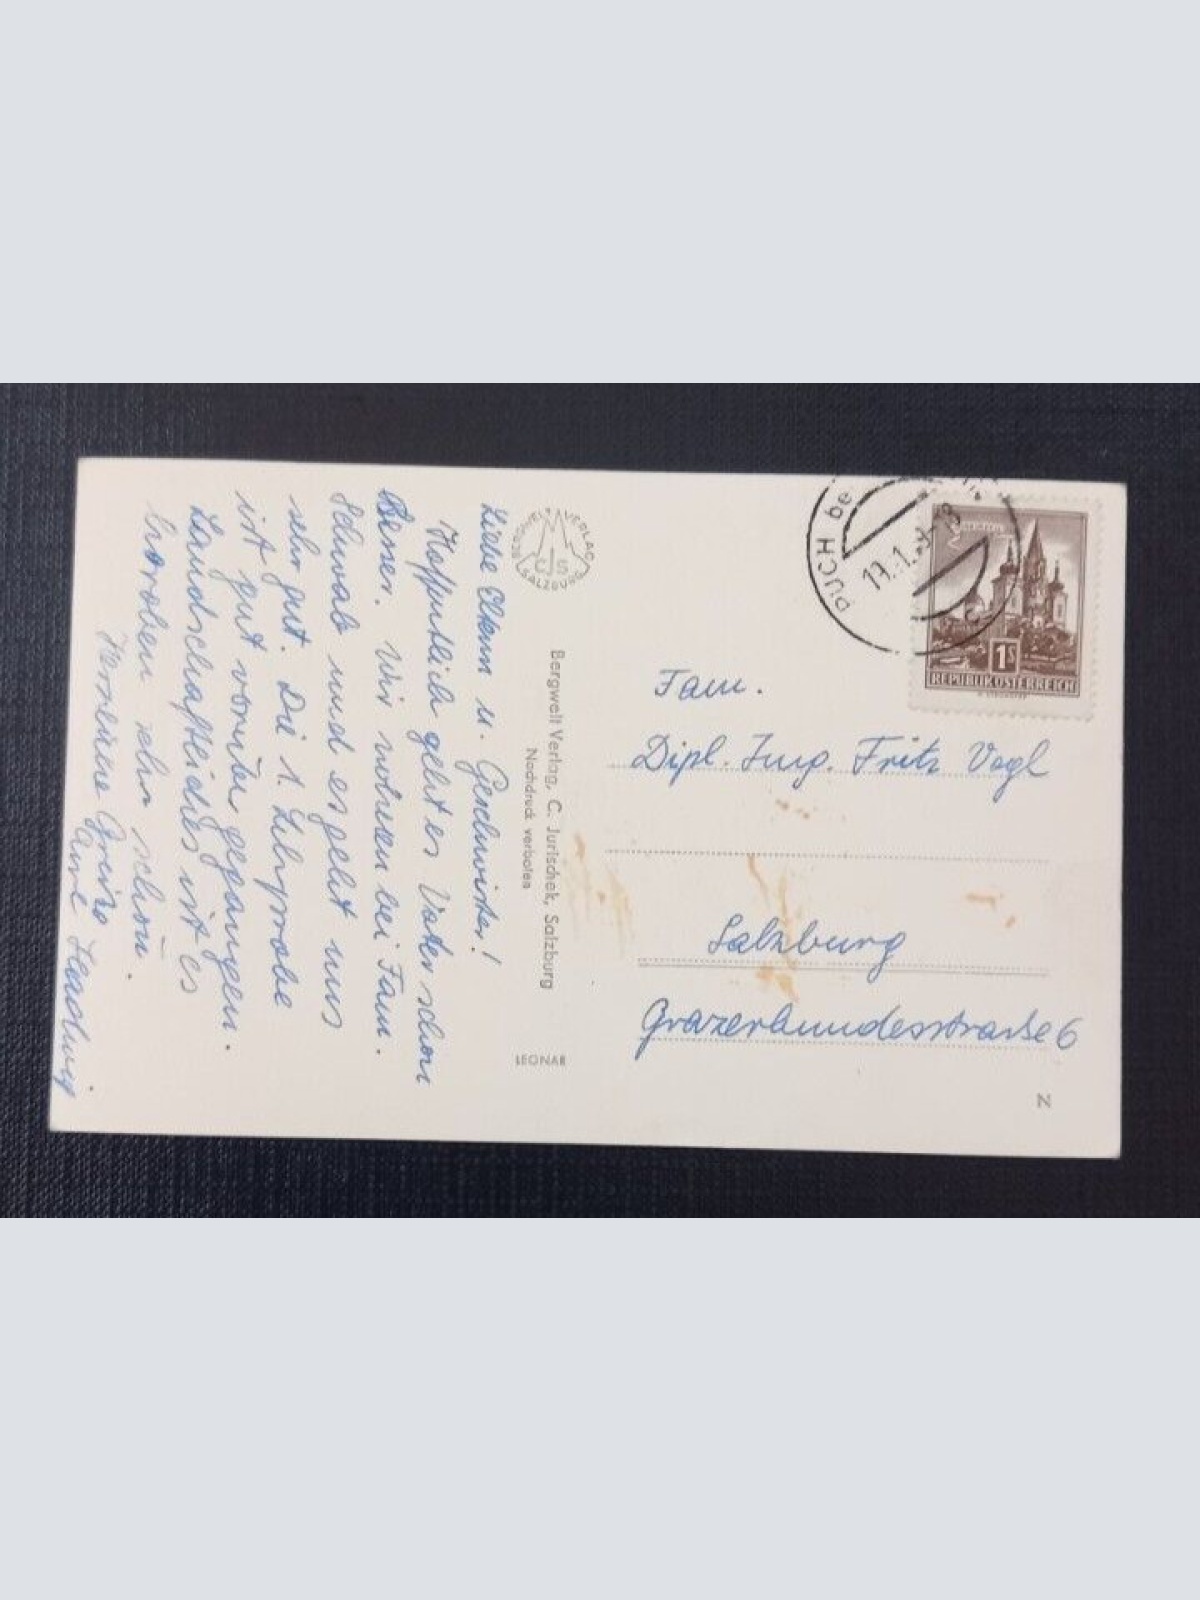 Liebe Eltern u. Geschwister!
Hoffentlich geht es Vater schon
Besser. Wir wohnen bei Fam.
Schwab und es geht uns
sehr gut. Die 1. Lehrprobe
ist gut vorüber gegangen.
Landschaftliches ist es
heroben sehr schön.
Grüße
Eure
BERGWELT VERLAG
CJS
SALZBURG
Bergwelt Verlag, C. Jurischek, Salzburg
Nachdruck verboten
LEONAR
PUCH bei
REPUBLIK ÖSTERREICH
1S
Fam.
Dipl. Ing. Fritz Vogl
Salzburg
Grazerbundesstraße 6
N